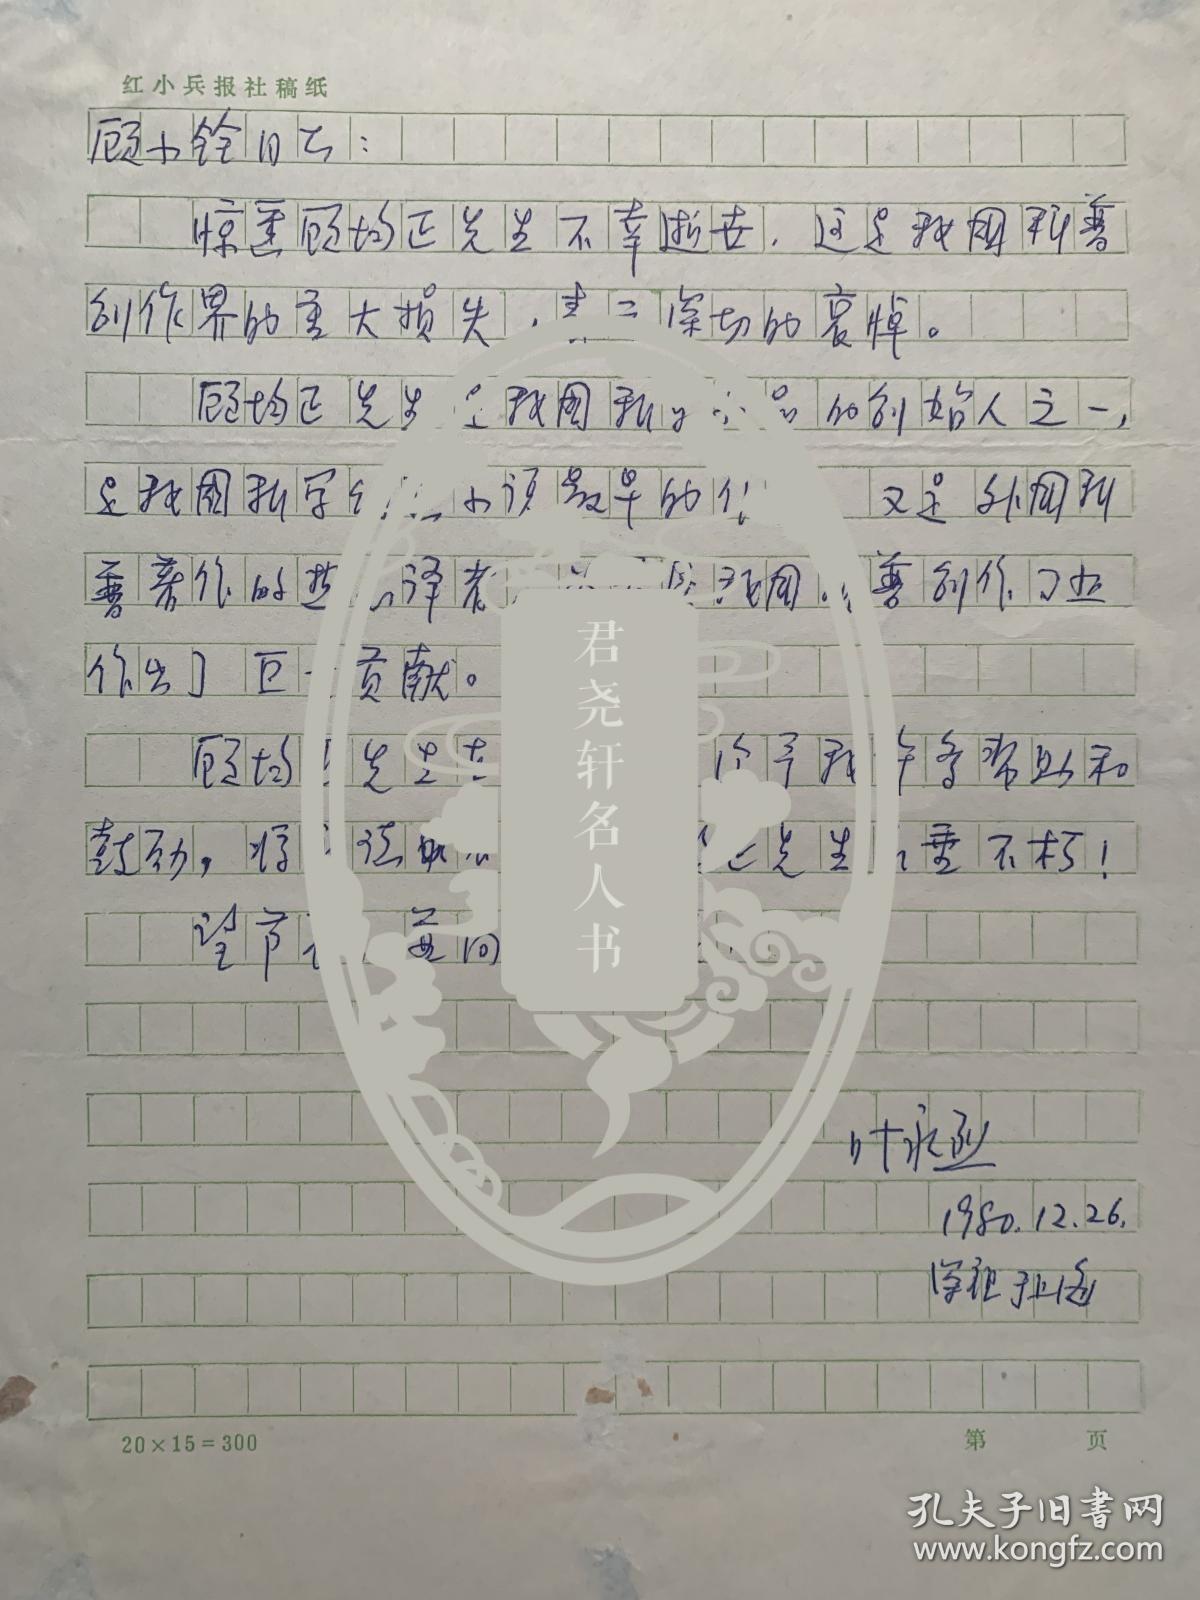 红小兵报社稿纸
顾小铨同志：
惊悉顾均正先生不幸逝世，这是我国科普
创作界的重大损失，表示深切的哀悼。
顾均正先生是我国科学小品的创始人之一，
是我国科学幻想小说最早的作 又是外国科
普著作的 译者， 我国科普创作事业
作出了巨大贡献。
顾均正先生在 给予我许多帮助和
鼓励，将 先生永垂不朽！
望节哀
叶永烈
1980.12.26.
深夜于上海
20×15=300
第 页
君尧轩名人书
孔夫子旧书网
www.kongfz.com